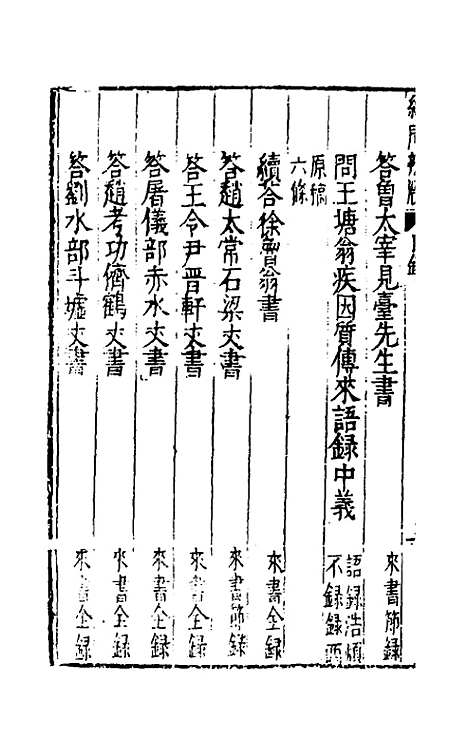 答曾太宰見臺先生書　來書節錄
問王塘翁疾因質傳來語錄中義　語錄浩煩不錄錄要
原稿六條
續答徐魯翁書　來書全錄
答趙太常石梁丈書　來書節錄
答王令尹晉軒丈書　來書全錄
答屠儀部赤水丈書　來書全錄
答趙考功儕鶴丈書　來書全錄
答劉水部斗墟丈書　來書全錄